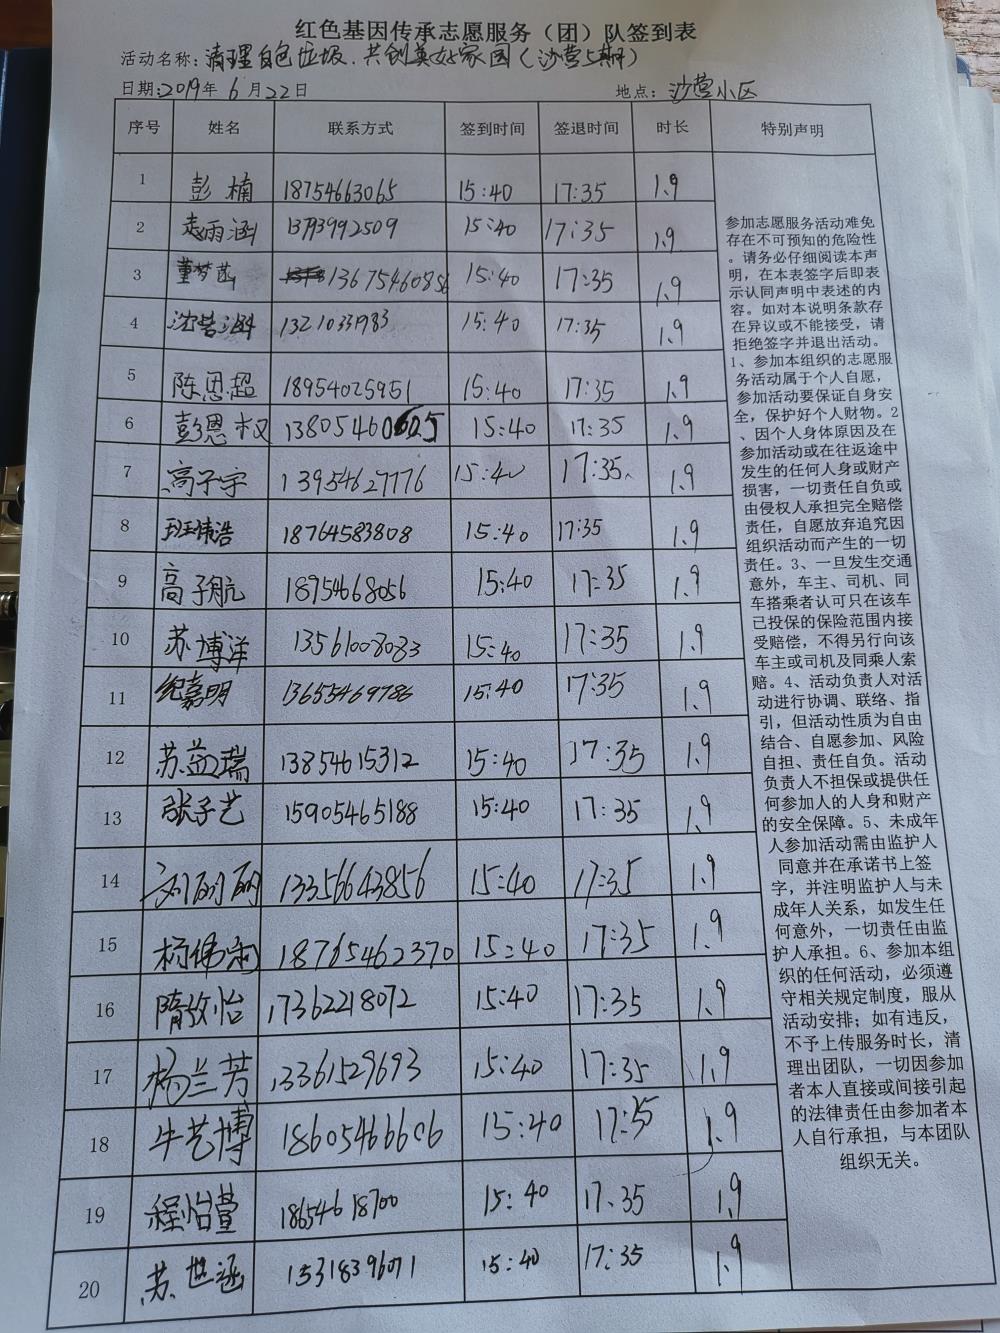 红色基因传承志愿服务（团）队签到表
活动名称: 清理白色垃圾、共创美好家园（沙营5期）
日期: 2019年 6 月 22 日 地点: 沙营小区
序号 姓名 联系方式 签到时间 签退时间 时长 特别声明
1 彭楠 18754663065 15:40 17:35 1.9
2 雨涵 15:40 17:35 1.9
3 董梦菡 13675460856 15:40 17:35 1.9
4 13210331983 15:40 17:35 1.9
5 陈恩超 18954025951 15:40 17:35 1.9
6 彭恩权 13805460605 15:40 17:35 1.9
7 高子宇 13954627776 15:40 17:35 1.9
8 班伟浩 18764583808 15:40 17:35 1.9
9 高子航 18954668056 15:40 17:35 1.9
10 苏博洋 13561008083 15:40 17:35 1.9
11 纪嘉明 13655469786 15:40 17:35 1.9
12 苏益瑞 13854615312 15:40 17:35 1.9
13 张子艺 15905465188 15:40 17:35 1.9
14 13356643856 15:40 17:35 1.9
15 18765462370 15:40 17:35 1.9
16 隋敬怡 17362218072 15:40 17:35 1.9
17 杨兰芳 13361529693 15:40 17:35 1.9
18 牛艺博 18605466606 15:40 17:35 1.9
19 程怡萱 18654618700 15:40 17.35 1.9
20 苏世涵 15318396071 15:40 17:35 1.9
参加志愿服务活动难免
存在不可预知的危险性
。请务必仔细阅读本声
明，在本表签字后即表
示认同声明中表述的内
容。如对本说明条款存
在异议或不能接受，请
拒绝签字并退出活动。
1、参加本组织的志愿服
务活动属于个人自愿，
参加活动要保证自身安
全，保护好个人财物。2
、因个人身体原因及在
参加活动或在往返途中
发生的任何人身或财产
损害，一切责任自负或
由侵权人承担完全赔偿
责任，自愿放弃追究因
组织活动而产生的一切
责任。3、一旦发生交通
意外，车主、司机、同
车搭乘者认可只在该车
已投保的保险范围内接
受赔偿，不得另行向该
车主或司机及同乘人索
赔。4、活动负责人对活
动进行协调、联络、指
引，但活动性质为自由
结合、自愿参加、风险
自担、责任自负。活动
负责人不担保或提供任
何参加人的人身和财产
的安全保障。5、未成年
人参加活动需由监护人
同意并在承诺书上签
字，并注明监护人与未
成年人关系，如发生任
何意外，一切责任由监
护人承担。6、参加本组
织的任何活动，必须遵
守相关规定制度，服从
活动安排；如有违反，
不予上传服务时长，清
理出团队，一切因参加
者本人直接或间接引起
的法律责任由参加者本
人自行承担，与本团队
组织无关。